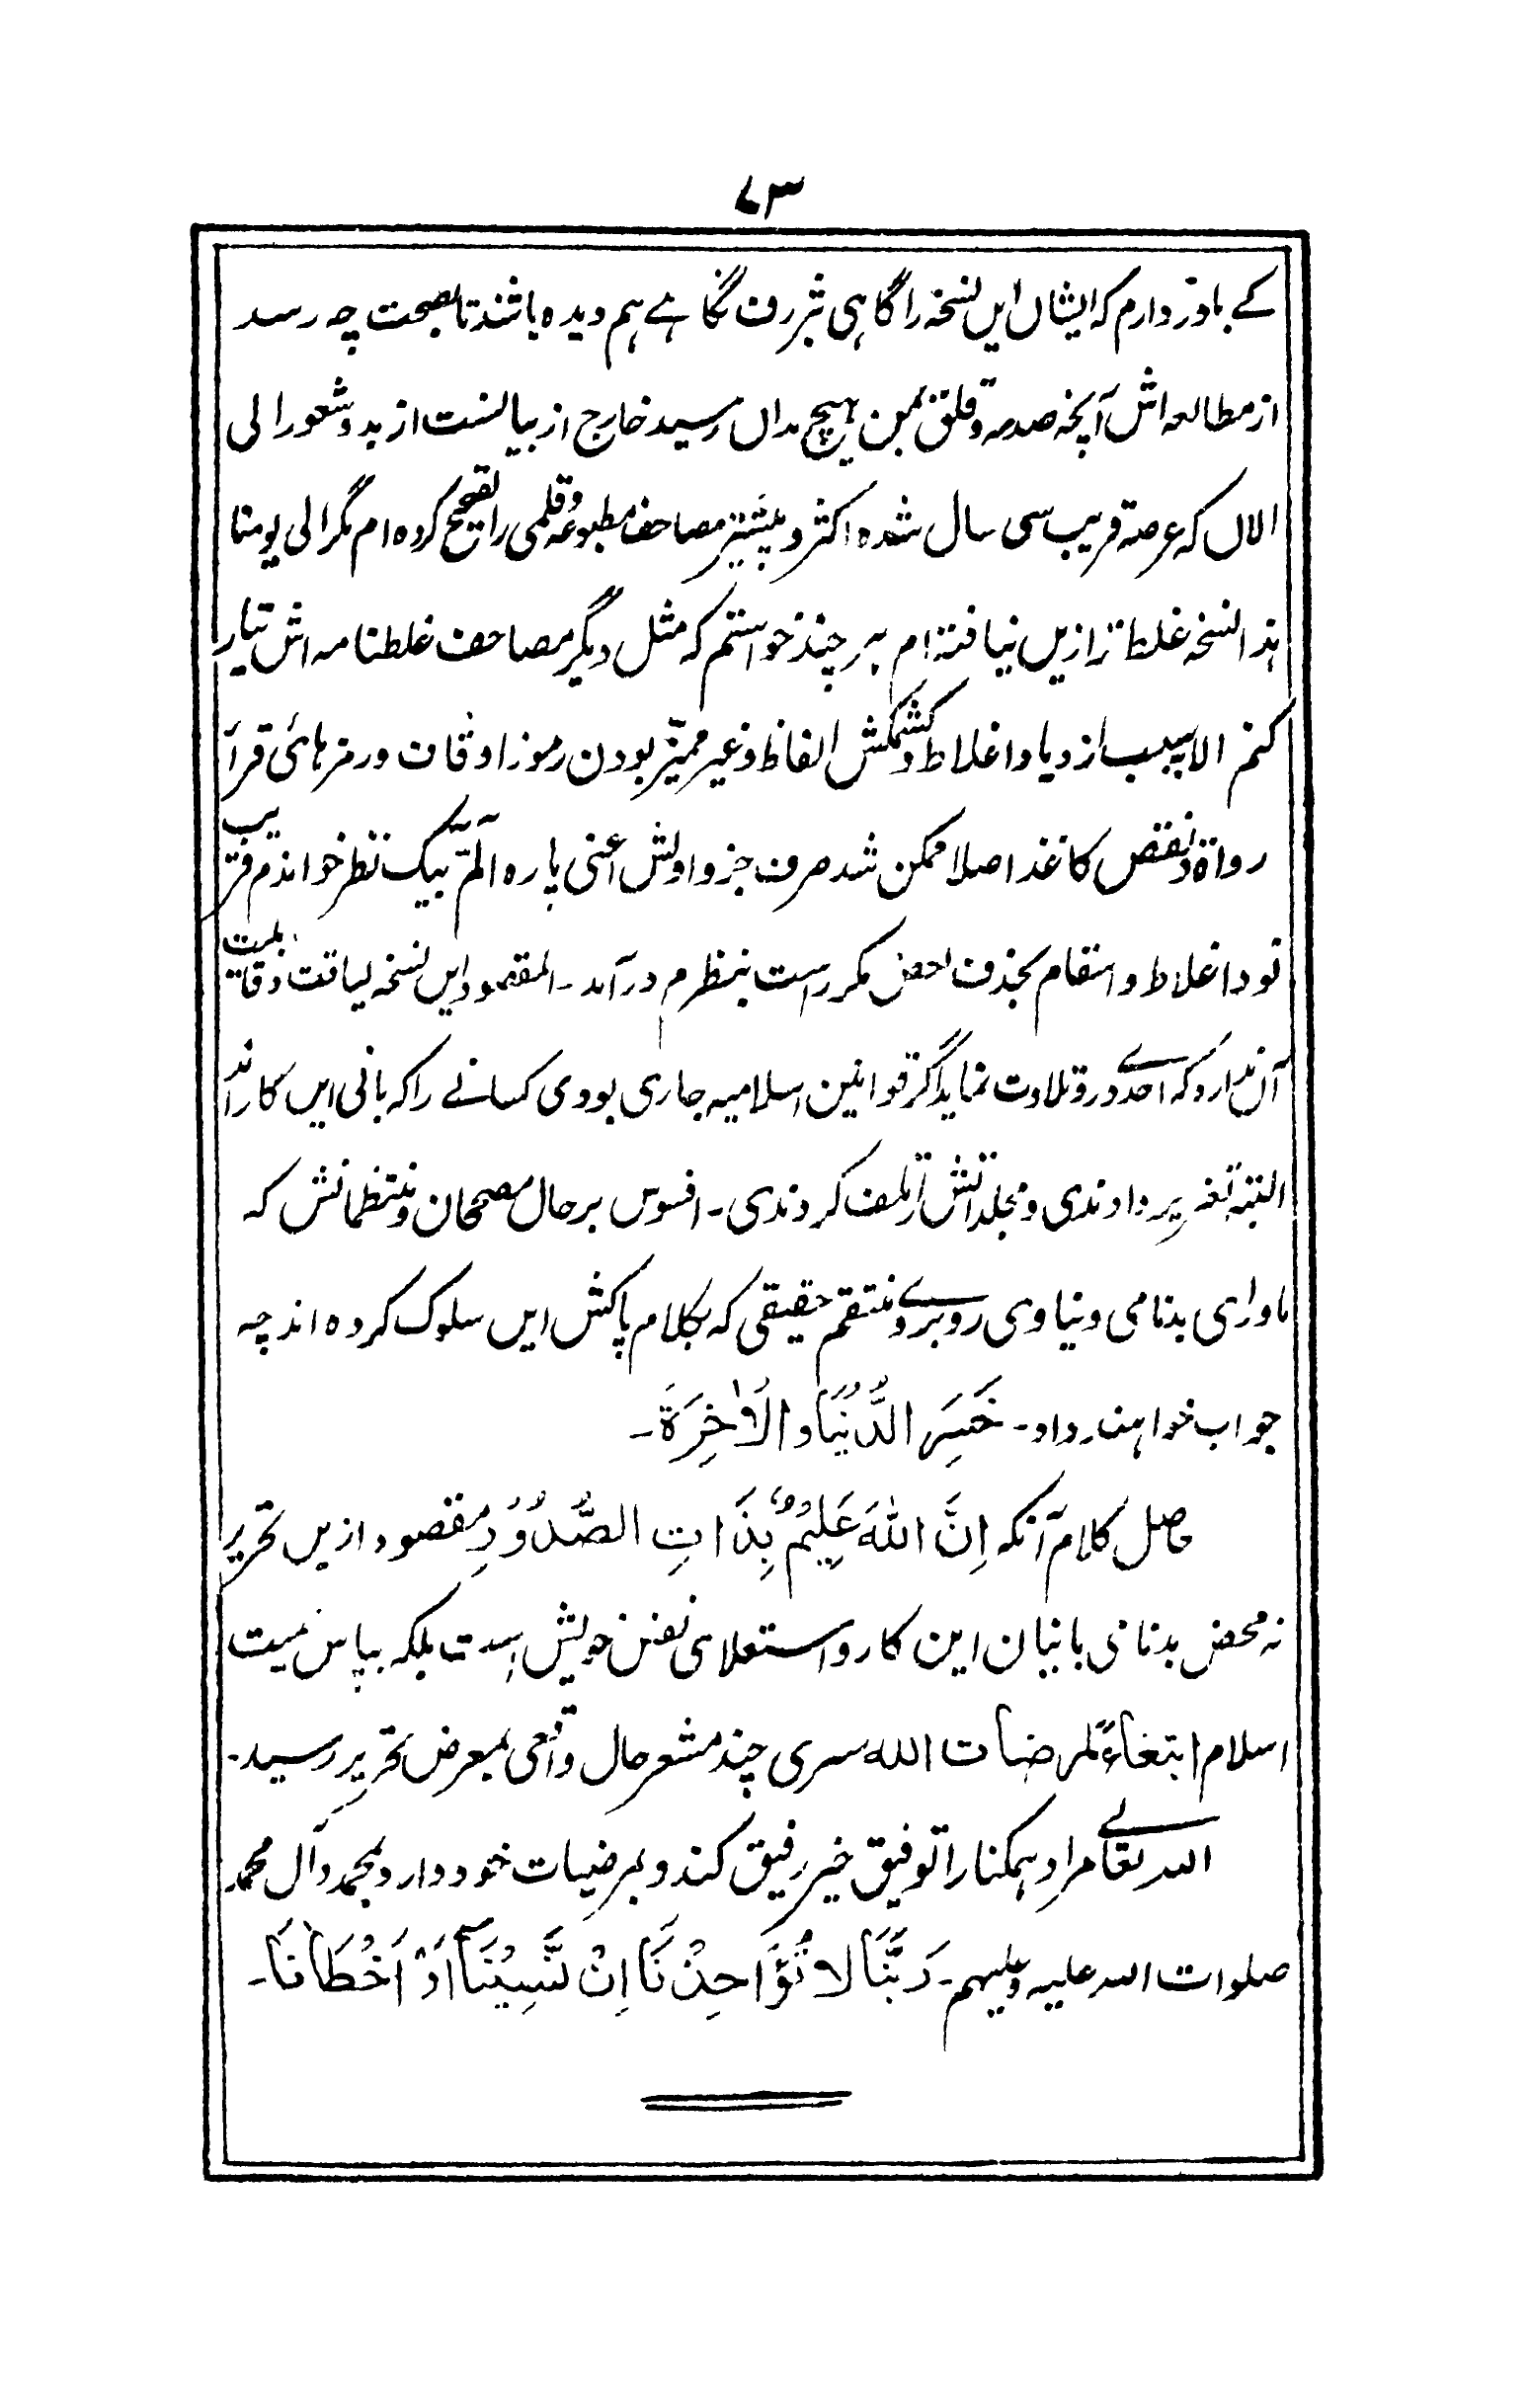 ۷۳
کے باور دارم کہ ایشاں ایں نسخہ را گاہی بژرف نگاہے ہم دیدہ باشند تا بصحت چہ رسد
از مطالعہ اش آنچہ صدمہ و قلق بمن ہیچ مداں رسید خارج از بیانست از بدو شعور الی
الاں کہ عرصہ قریب سی سال شدہ اکثر و بیشتر مصاحف مطبوعہ و قلمی را تصحیح کردہ ام مگر الی یومنا
ہذا نسخہ غلط تر ازیں نیافتہ ام ہر چند خواستم کہ مثل دیگر مصاحف غلطنامہ اش تیار
کنم الا بسبب ازدیاد اغلاط و کشمکش الفاظ و غیر ممیّز بودن رموز اوقاف و رمزہائی قرآ
رواۃ و نقص کاغذ اصلا ممکن نشد صرف جزو اولش اعنی پارہ الٓمّٓ بیک نظر خواندم قریب
نود اغلاط و اسقام بحذف بعض مکررات بنظرم درآمد۔ المقصود ایں نسخہ لیاقت و قابلیت
آں ندارد کہ احدے درو تلاوت نماید اگر قوانین اسلامیہ جاری بودی کسانے را کہ بانی ایں کار اند
البتہ تعزیر دادندی و مجلداتش را تلف کردندی۔ افسوس بر حال مصححان و منتظمانش کہ
ماورای بدنامی دنیاوی روبروے منتقم حقیقی کہ بکلام پاکش ایں سلوک کردہ اند چہ
جواب خواہند داد۔ خَسِرَ الدُّنْیَا وَالْاٰخِرَةَ۔
حاصل کلام آنکہ اِنَّ اللهَ عَلِیْمٌۢ بِذَاتِ الصُّدُوْرِ مقصود ازیں تحریر
نہ محض بدنامی بانیان این کار و استعلای نفس خویش است بلکہ بپاس حمیت
اسلام ابتغاءً لمرضات اللہ سطری چند مشعر حال واقعی بمعرض تحریر رسید۔
اللہ تعالےٰ مرا و ہمکناں را توفیق خیر رفیق کند و بمرضیات خود دارد بمحمد وآل محمد
صلوات اللہ علیہ وعلیہم۔ رَبَّنَا لَا تُؤَاخِذْنَا اِنْ نَّسِیْنَآ اَوْ اَخْطَاْنَا۔